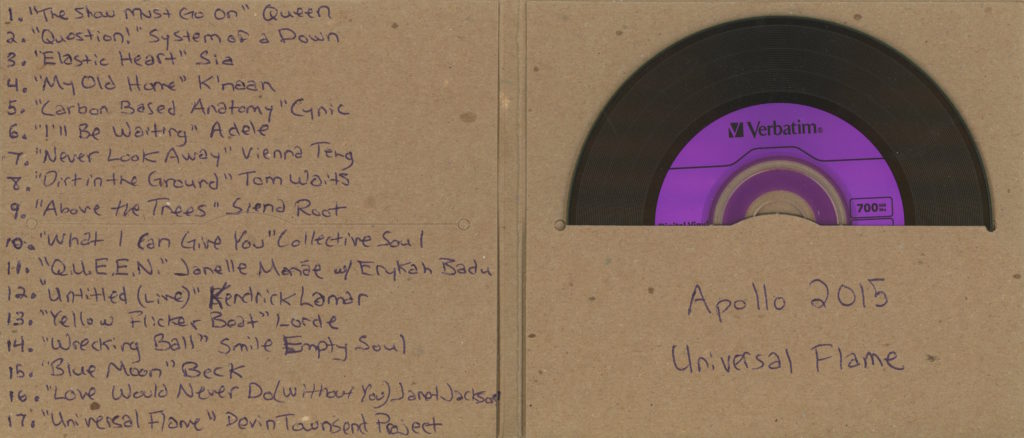 1. "The Show Must Go On" Queen
2. "Question!" System of a Down
3. "Elastic Heart" Sia
4. "My Old Home" K'naan
5. "Carbon Based Anatomy" Cynic
6. "I'll Be Waiting" Adele
7. "Never Look Away" Vienna Teng
8. "Dirt in the Ground" Tom Waits
9. "Above the Trees" Siena Root
10. "What I Can Give You" Collective Soul
11. "Q.U.E.E.N." Janelle Monáe w/ Erykah Badu
12. "Untitled (Live)" Kendrick Lamar
13. "Yellow Flicker Beat" Lorde
14. "Wrecking Ball" Smile Empty Soul
15. "Blue Moon" Beck
16. "Love Would Never Do (Without You) Janet Jackson
17. "Universal Flame" Devin Townsend Project
Verbatim
700MB
Apollo 2015
Universal Flame